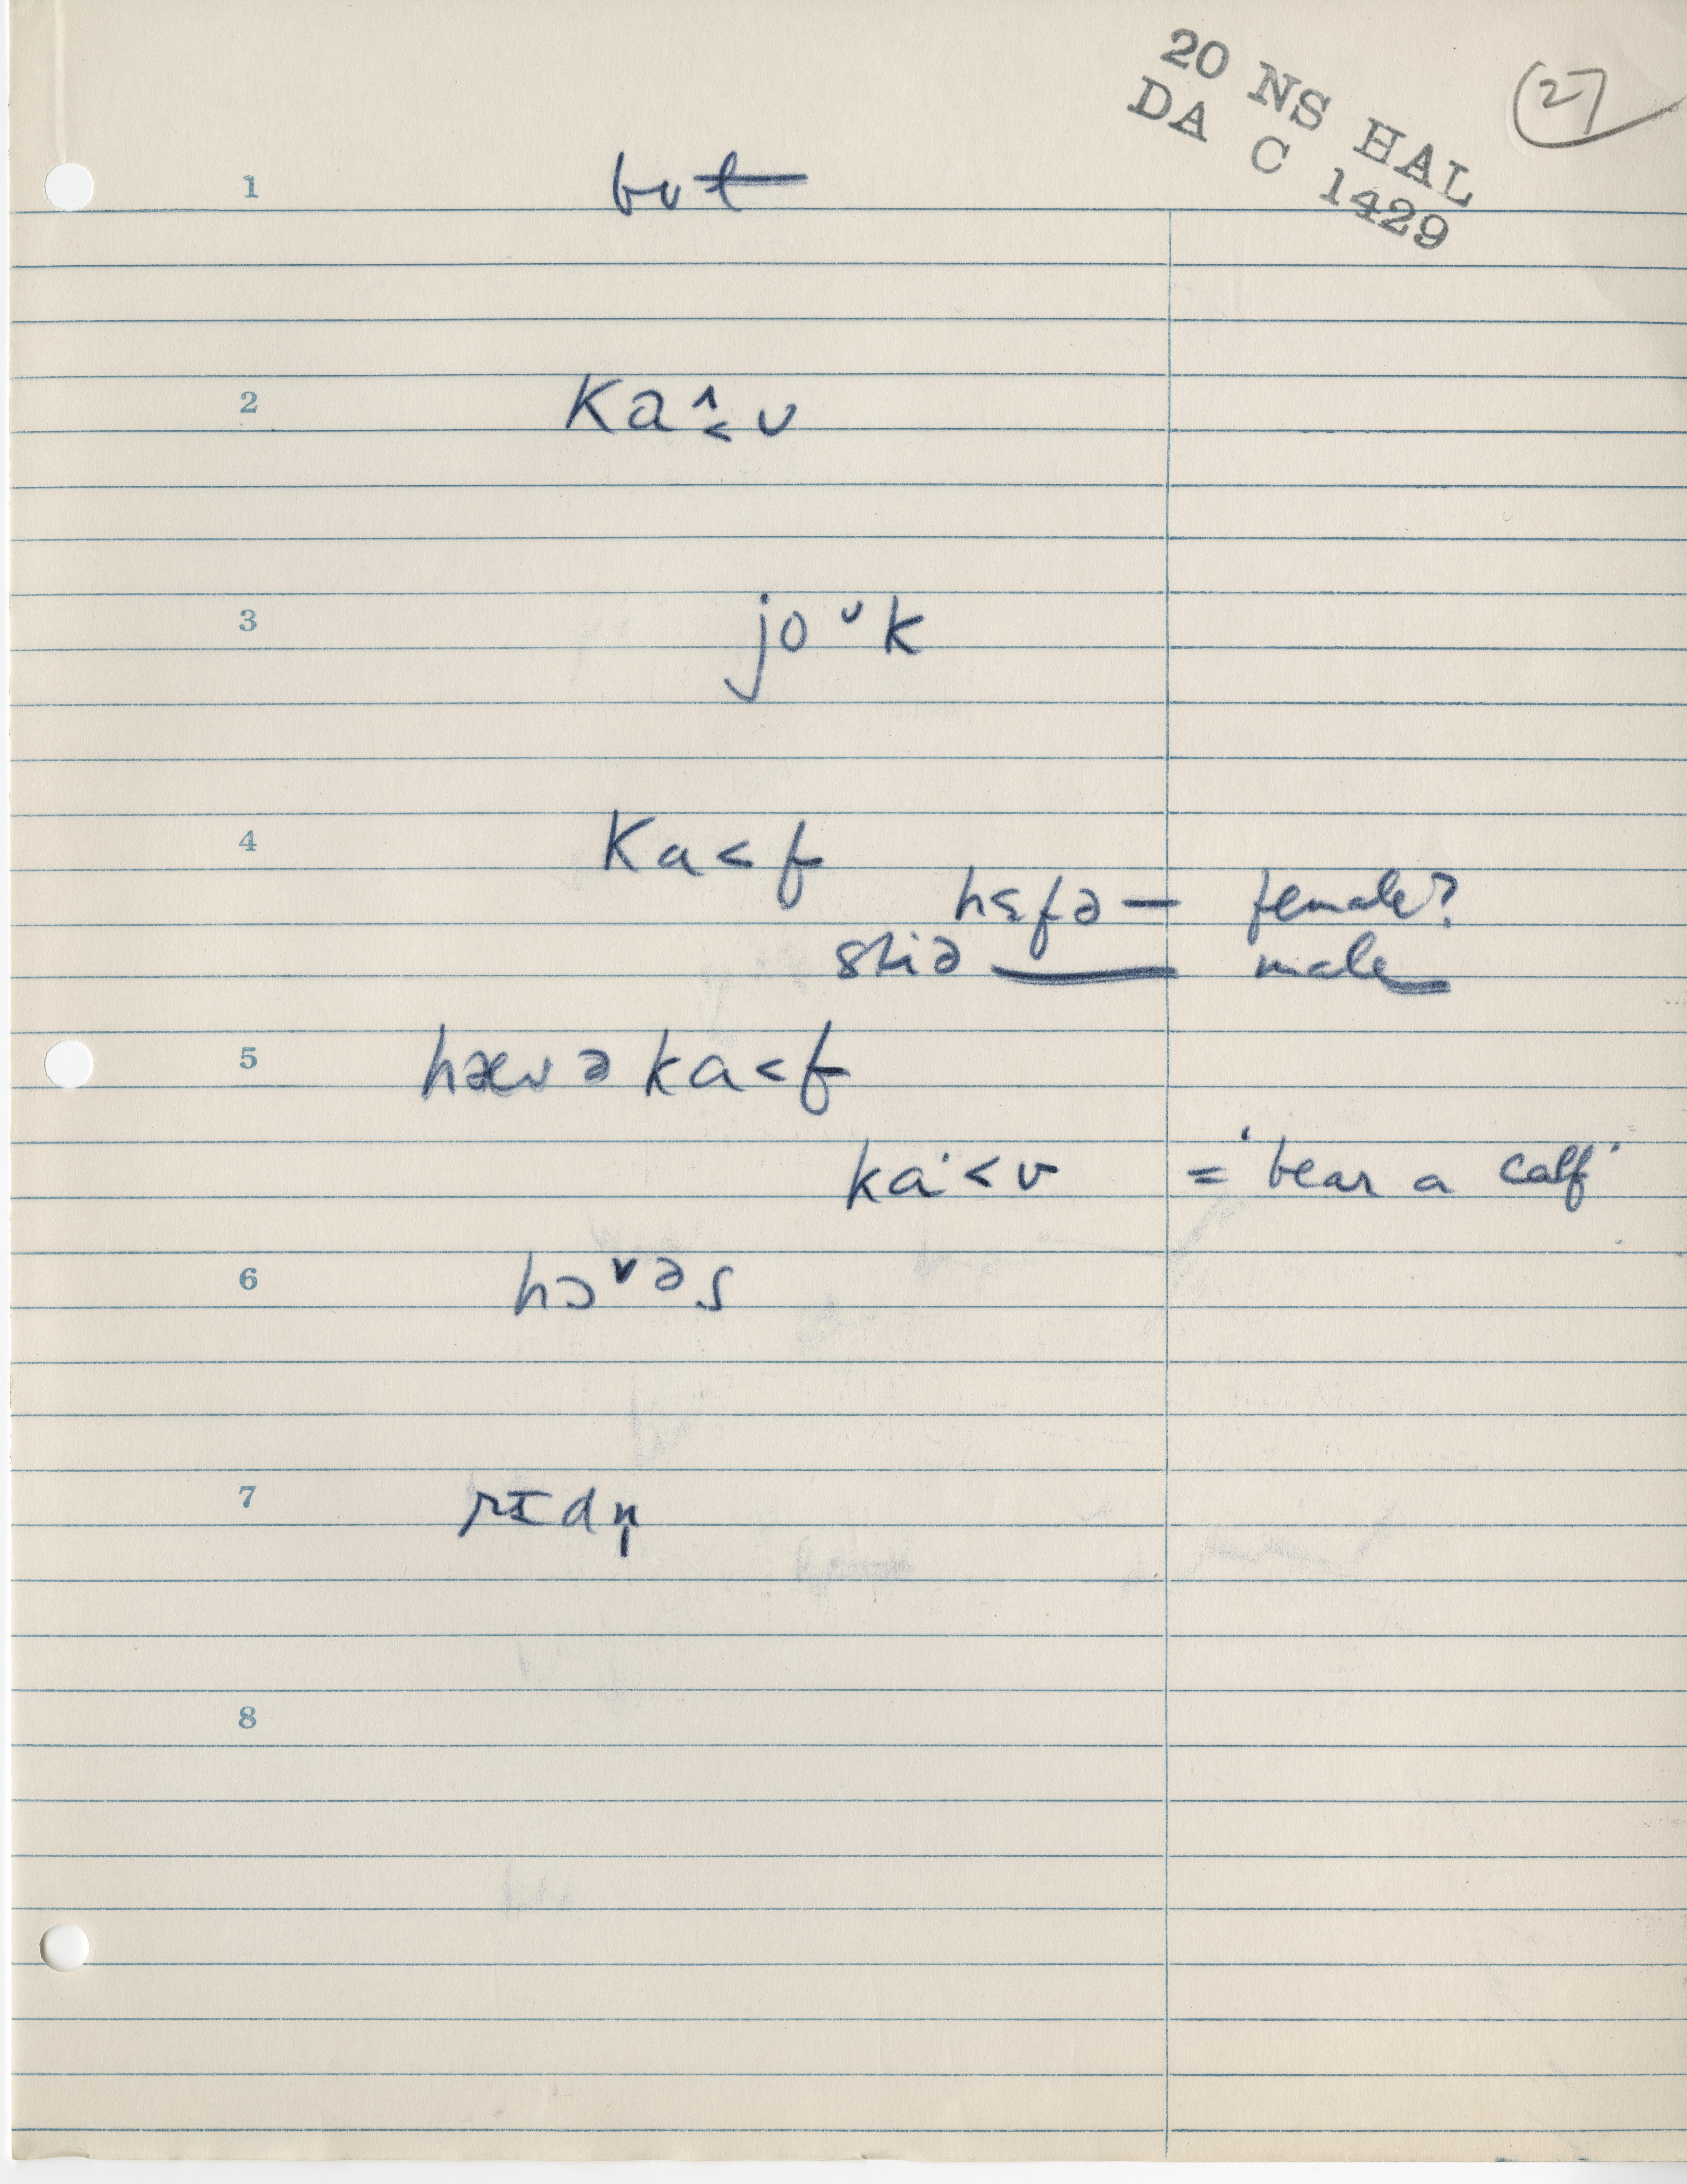 20 NS HAL
DA C 1429
27
1 bʊt
2 ka^<ʊ
3 joᵕk
4 ka<f
hɛfə — female?
stiə — male
5 hæv ə ka<f
ka·<v = 'bear a calf'
6 hɔˇəs
7 rɪdn̩
8